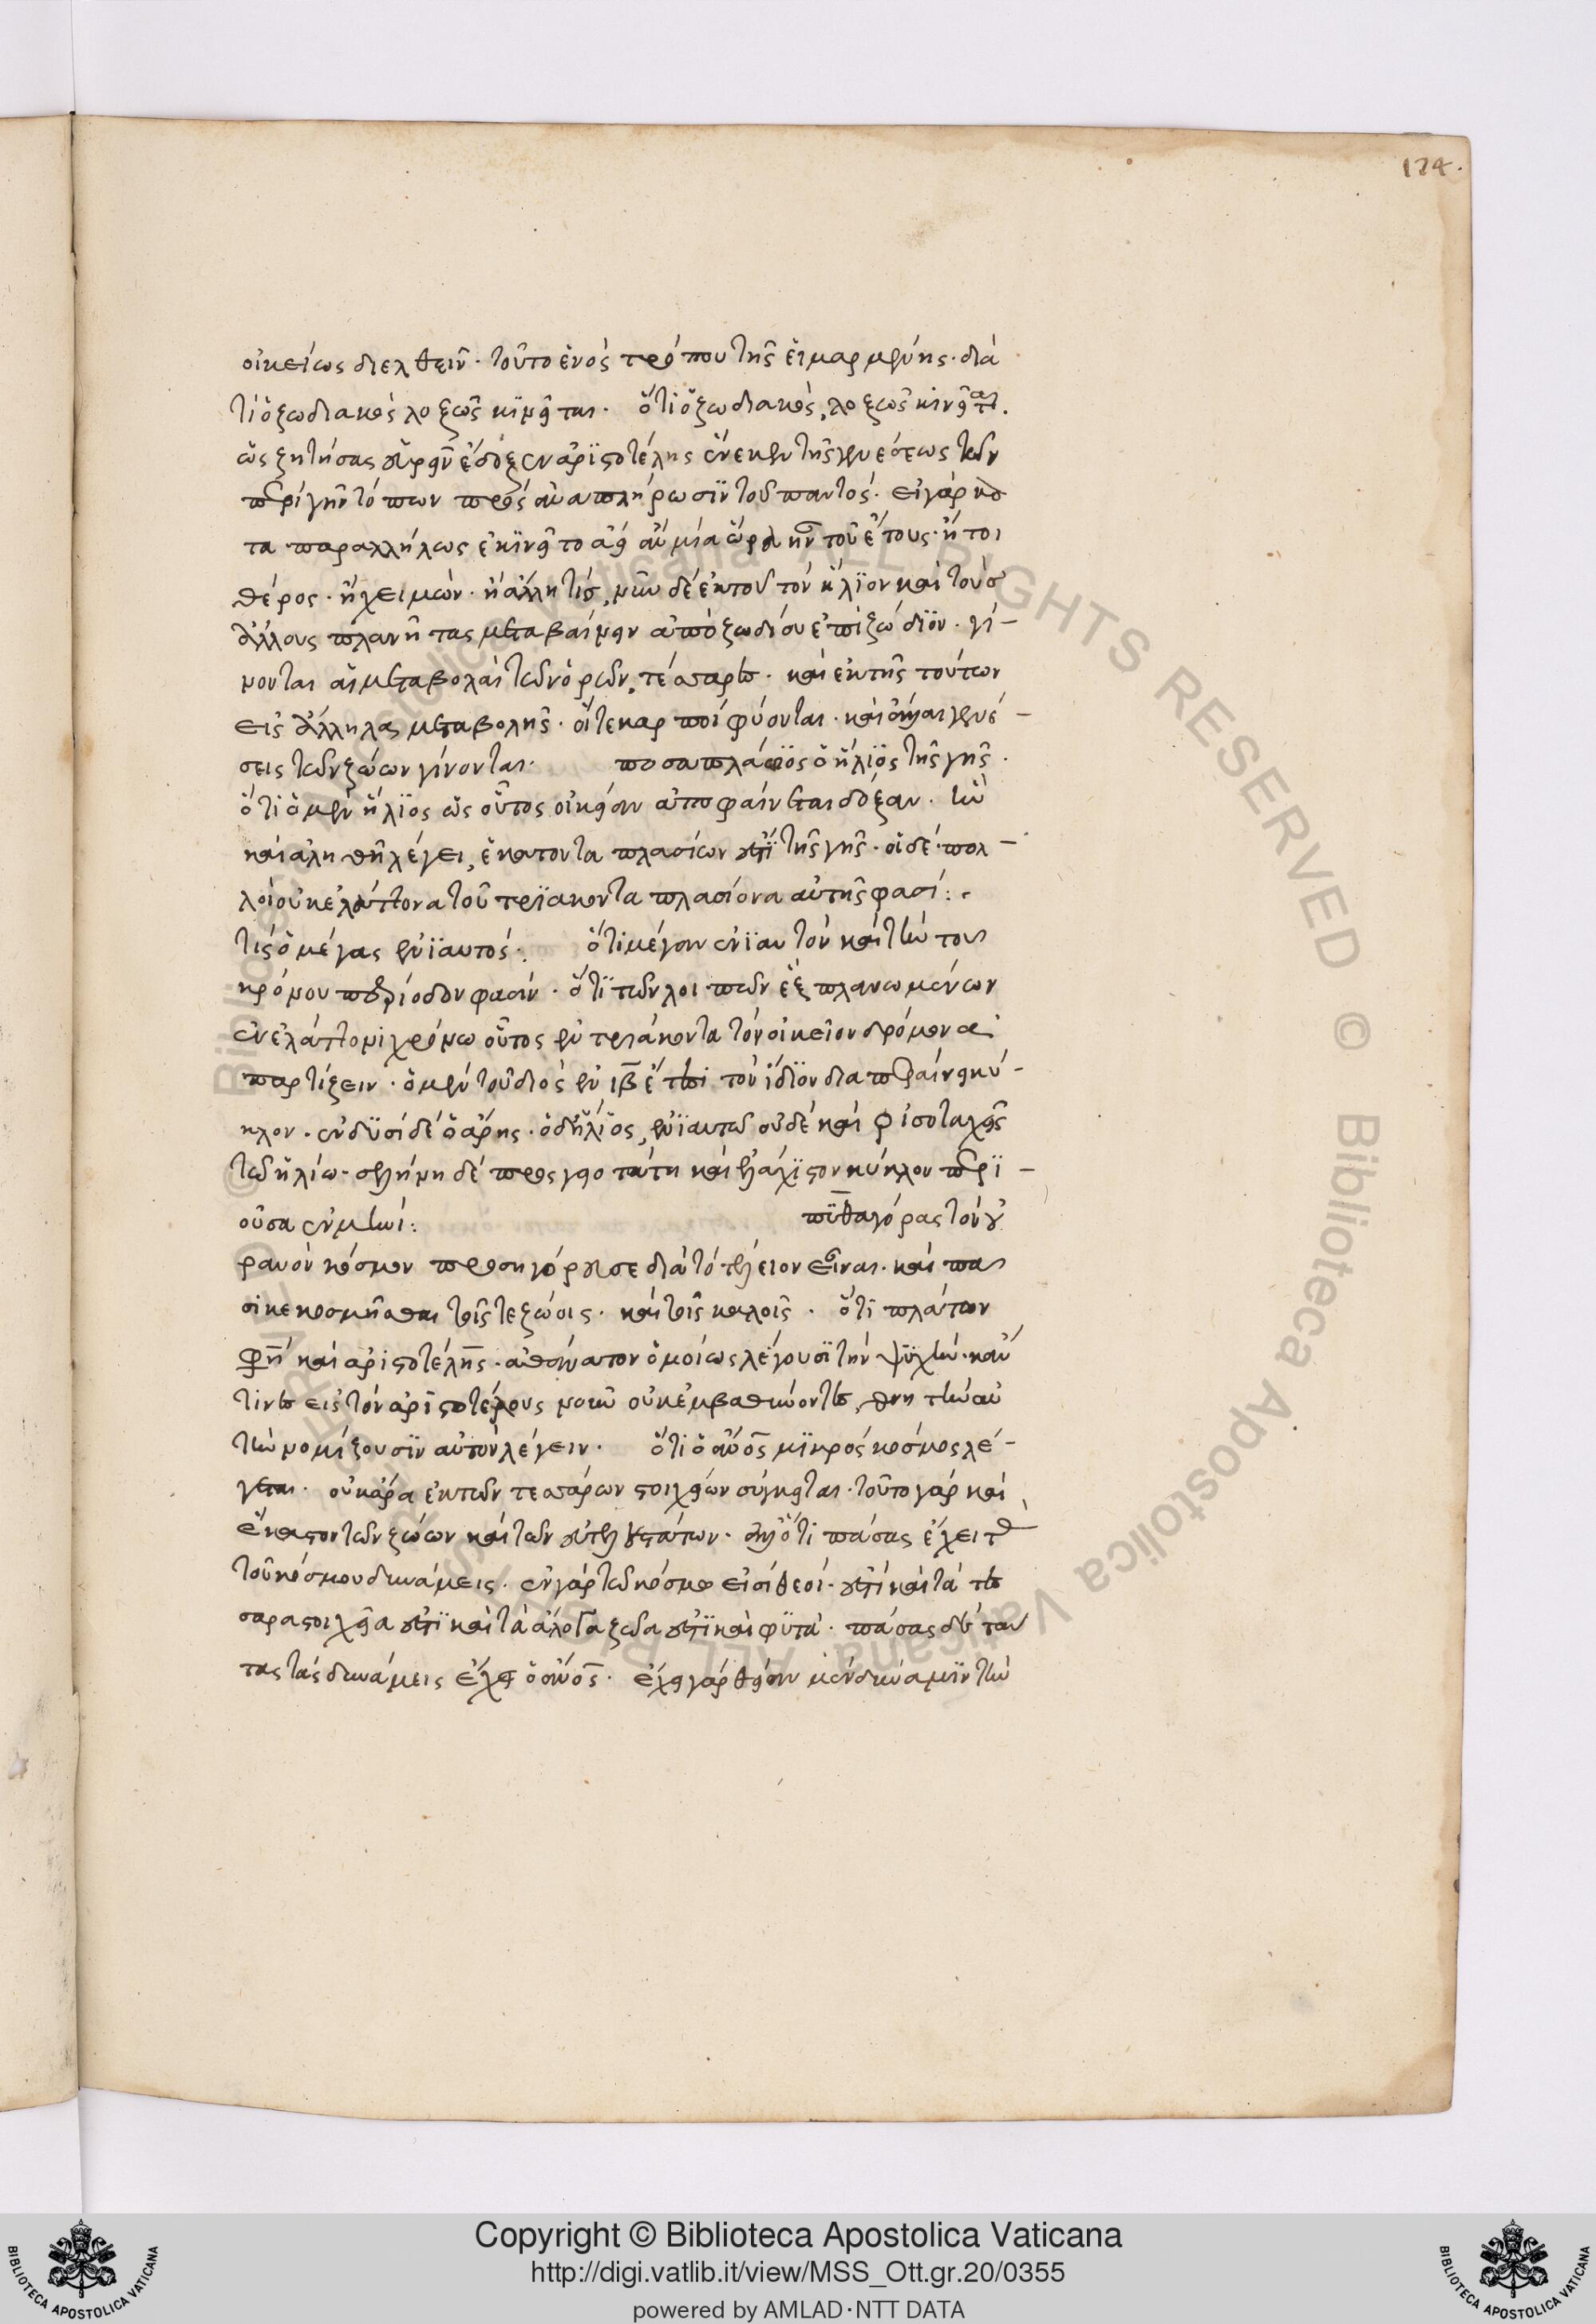 174.
οἰκείως διελθεῖν· τοῦτο ἑνὸς τρόπου τῆς εἱμαρμένης· διὰ
τί ὁ ζωδιακὸς λοξῶς κϊνεῖται· ὅτι ὁ ζωδιακὸς, λοξῶς κινεῖται.
ὡς ζητήσας εὑρεῖν ἔδοξεν ἀρϊστοτέλης ἕνεκεν τῆς γενέσεως τῶν
περὶ γῆν τόπων πρὸς ἀναπλήρωσϊν τοῦ παντός· εἰ γὰρ κα
τα παραλλήλως ἐκϊνεῖτο ἀεὶ ἂν μία ὥρα ἦν τοῦ ἔτους· ἤτοι
θέρος· ἢ χειμών· ἢ ἄλλη τίσ, νῦν δὲ ἐκ τοῦ τὸν ἥλϊον καὶ τοὺσ
ἄλλους πλανήτας μεταβαίνειν ἀπὸ ζωδίου ἐπὶ ζώδϊον· γί-
νονται αἱ μεταβολαὶ τῶν ὁρῶν, τέσσαρες· καὶ ἐκ τῆς τούτων
εἰς ἄλληλας μεταβολῆς· οἵ τε καρποὶ φύονται· καὶ αἱ γενέ-
σεις τῶν ζώων γίνονται· ποσαπλάσϊός ὁ ἥλϊός τῆς γῆς·
ὅτι ὁ μὲν ἥλϊος ὡς οὗτος οἰκείαν ἀποφαίνεται δόξαν· ἣν
καὶ ἀληθῆ λέγει, ἑκατονταπλασίων ἐστὶ τῆς γῆς· οἱ δὲ πολ-
λοὶ οὐκ ἐλάττονα τοῦ τρϊακονταπλασίονα αὐτῆς φασί:·
τίς ὁ μέγας ἐνϊαυτός· ὅτι μέγαν ἐνϊαυτὸν καὶ τὴν τοῦ
κρόνου περίοδον φασὶν· ὅτϊ τῶν λοιπῶν ἓξ πλανωμένων
ἐν ἐλάττονι χρόνω οὗτος ἐν τριάκοντα τὸν οἰκεῖον δρόμον ἀ
παρτίζειν· ὁ μὲν τοῦ διὸς ἐν ιβ ἔτεσι τὸν ἴδϊον διαπεραίνει κύ-
κλον· ἐν δϋσὶ δὲ ὁ ἄρης· ὁ δὲ ἥλϊος, ἐνϊαυτῶ οὐδὲ καὶ φ ἰσοταχεῖς
τῶ ἡλίω· σελήνη δὲ προσγειοτάτη καὶ ἐλάχϊστον κύκλον περϊ-
οῦσα ἐν μηνί: πϋθαγόρας τὸν οὐ
ρανὸν κόσμον προσηγόρευσε διὰ τὸ τέλειον εἶναι· καὶ πᾶ
σι κεκοσμῆσθαι τοῖς τε ζώοις· καὶ τοῖς καλοῖς· ὅτϊ πλάτων
φησὶ καὶ ἀριστοτέλης· ἀθάνατον ὁμοίως λέγουσϊ τὴν ψϋχὴν· κἂν
τινες εἰς τὸν ἀρϊστοτέλους νοῦν οὐκ ἐμβαθύνοντες, θνητὴν αὐ
τὴν νομίζουσϊν αὐτὸν λέγειν· ὅτι ὁ ἄνος μϊκρὸς κόσμος λέ-
γεται· οὐκ ἄρα ἐκ τῶν τεσσάρων στοιχείων σύγκειται· τοῦτο γὰρ καὶ
ἕκαστον τῶν ζώων καὶ τῶν εὐτελεστάτων· ἀλλ' ὅτι πάσας ἔχει τὰς
τοῦ κόσμου δυνάμεις· ἐν γὰρ τῶ κόσμω εἰσὶ θεοί· ἐστὶ καὶ τὰ τέσ
σαρα στοιχεῖα ἐστϊ καὶ τὰ ἄλογα ζῶα ἐστϊ καὶ φϋτὰ· πάσας δὲ ταύ
τας τὰς δυνάμεις ἔχει ὁ ἄνος· ἔχει γὰρ θείαν μὲν δύναμϊν τὴν
Copyright © Biblioteca Apostolica Vaticana
http://digi.vatlib.it/view/MSS_Ott.gr.20/0355
powered by AMLAD·NTT DATA